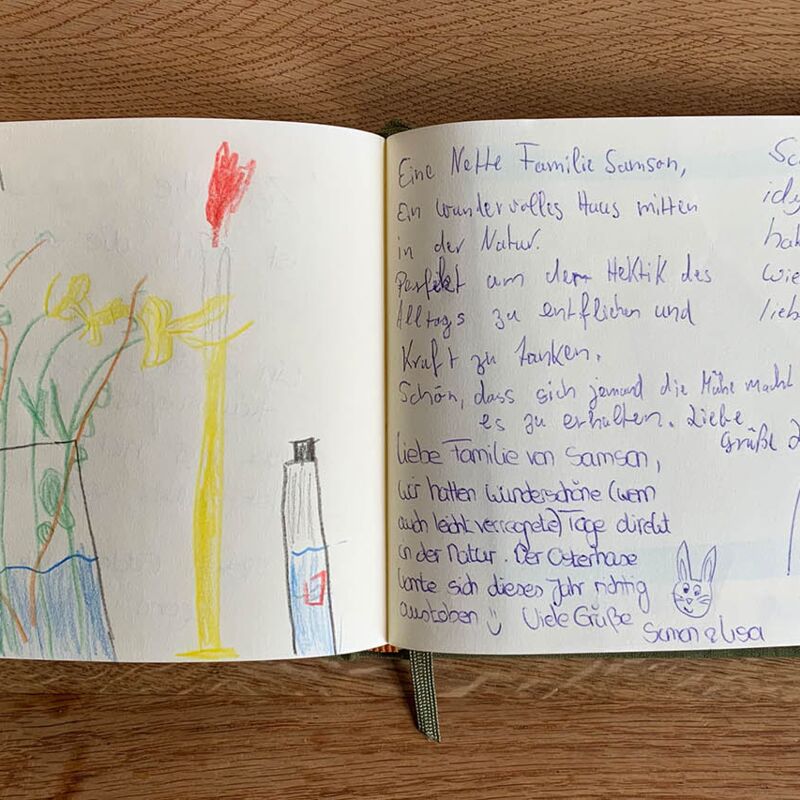 Eine Nette Familie Samson,
ein wundervolles Haus mitten
in der Natur.
Perfekt um dem Hektik des
Alltags zu entfliehen und
Kraft zu tanken.
Schön, dass sich jemand die Mühe macht
es zu erhalten. Liebe
Grüße
Liebe Familie von Samson,
wir hatten wunderschöne (wenn
auch leicht verregnete) Tage direkt
in der Natur. Der Osterhase
konte sich dieses Jahr richtig
austoben :) Viele Grüße
Simon & Lisa
idy
wie
lieb